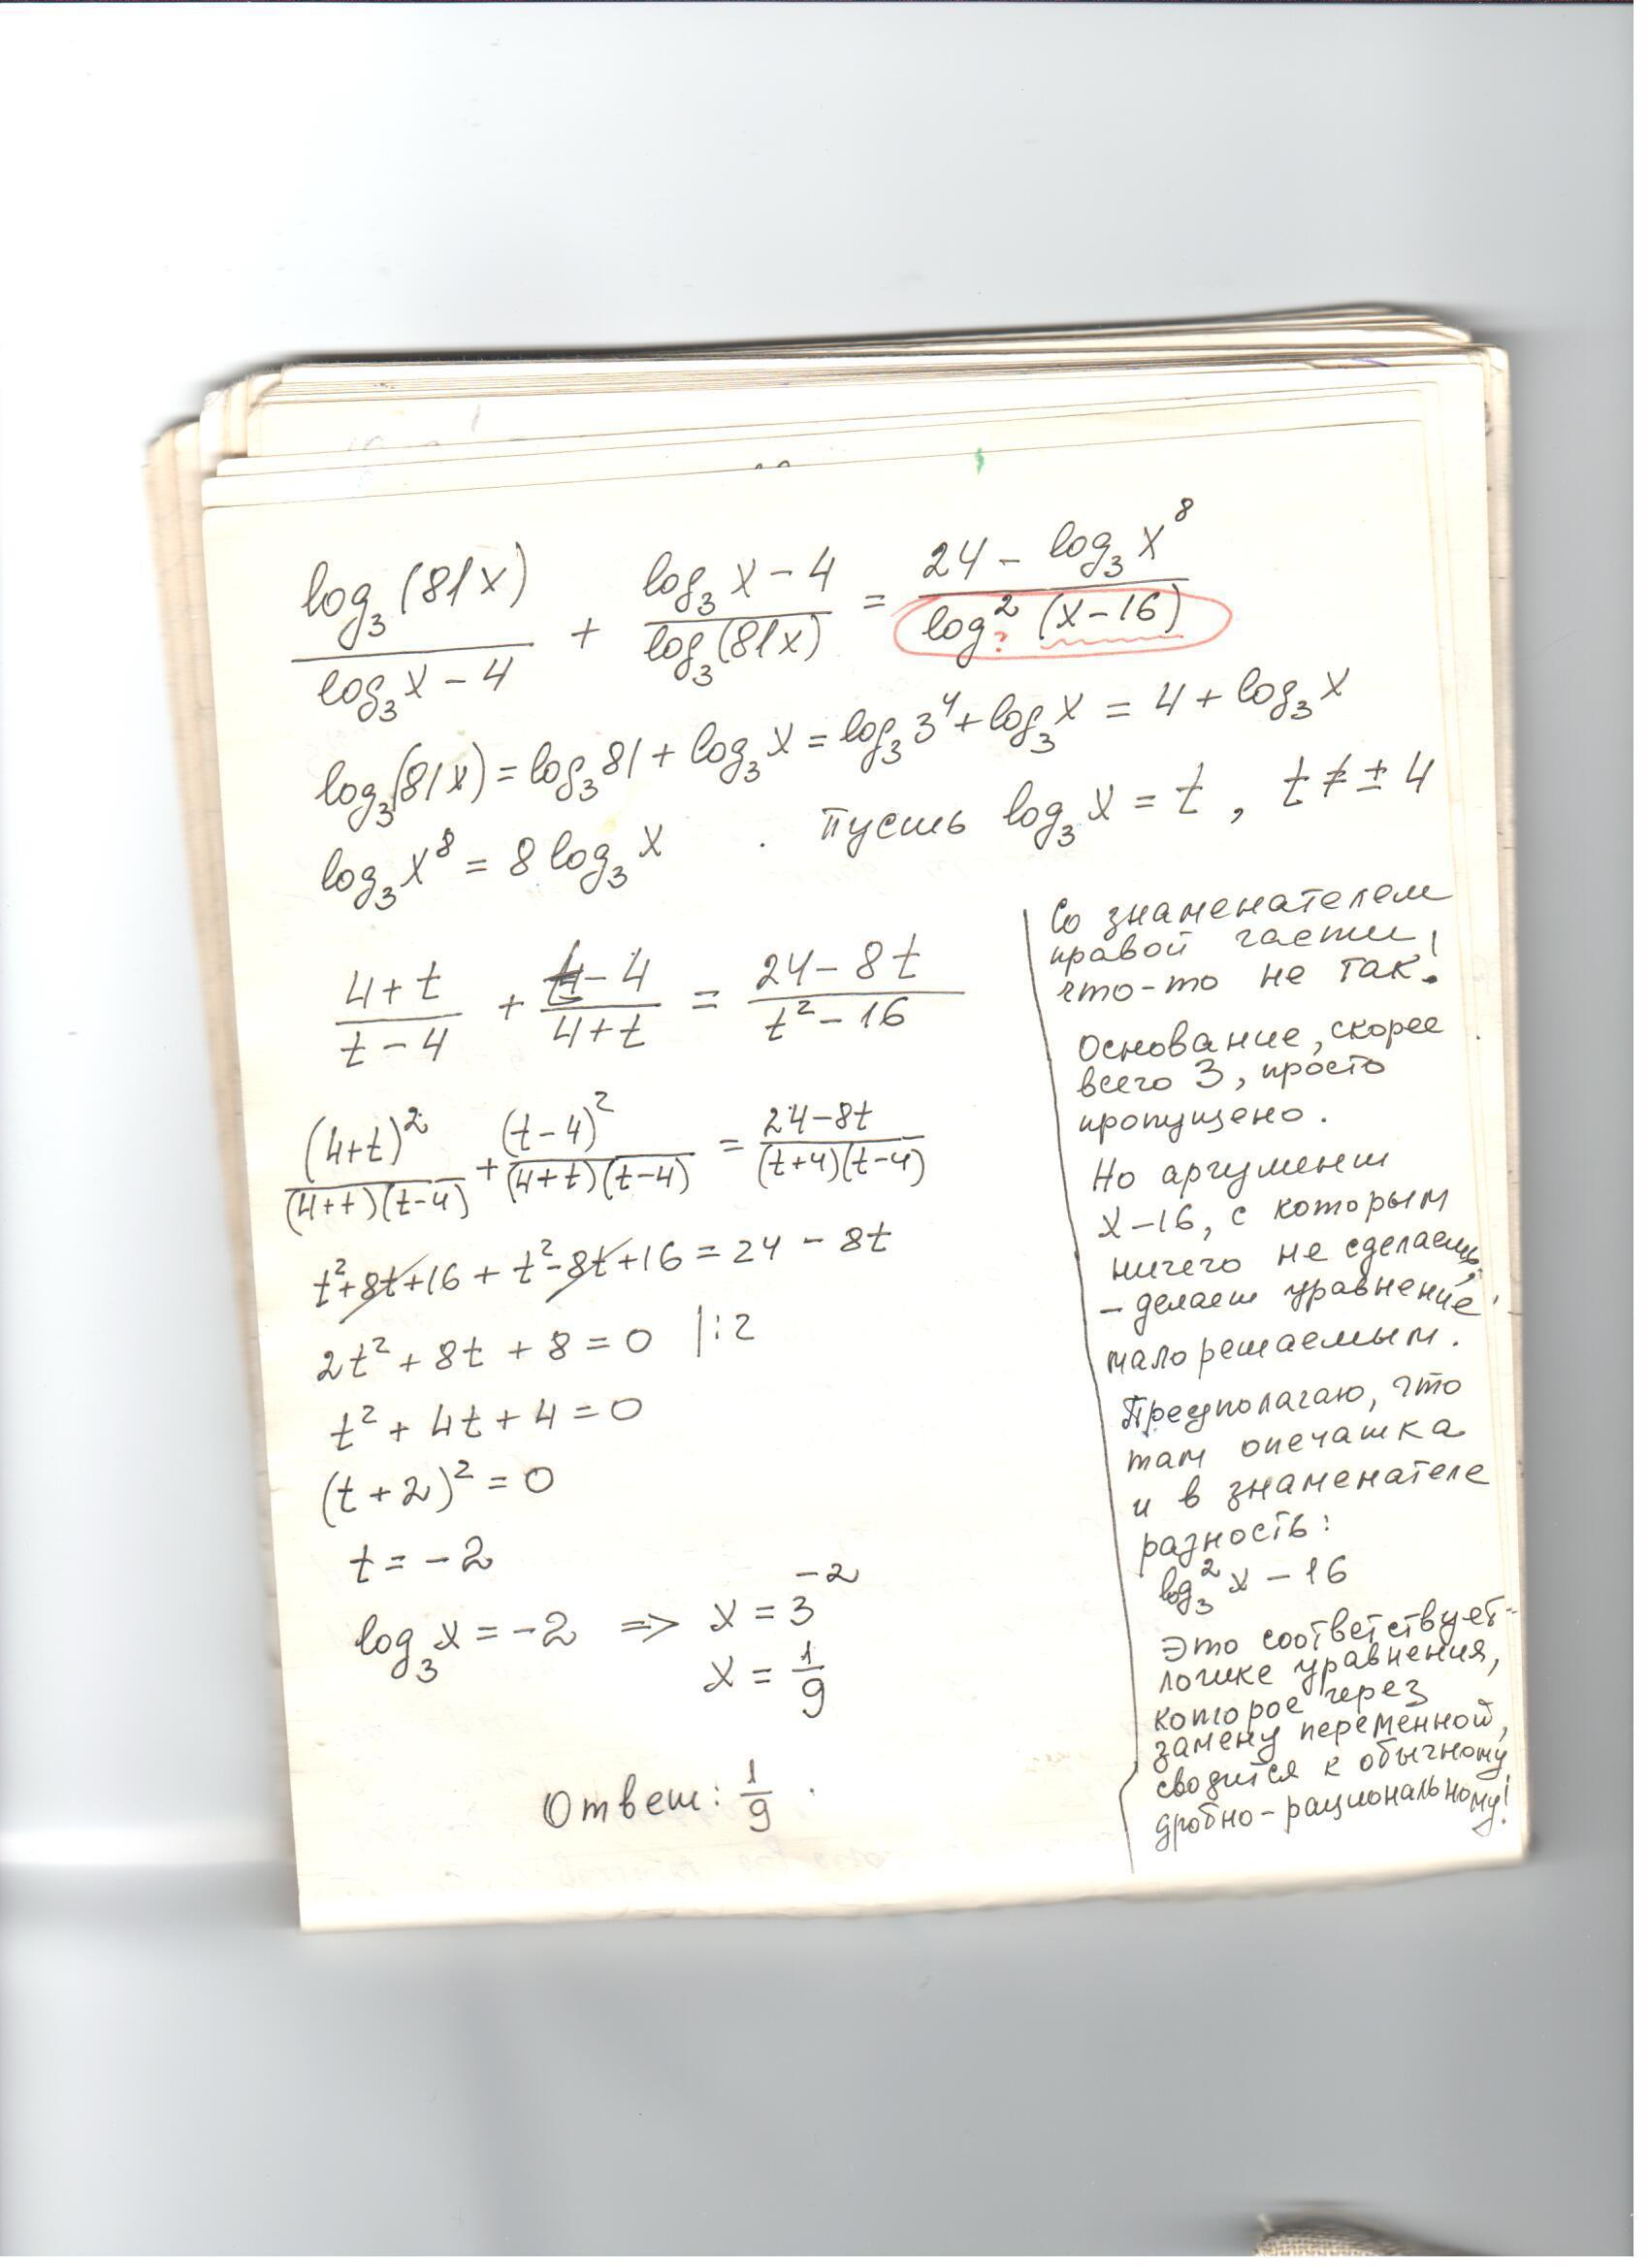 log₃(81x)/(log₃x – 4) + (log₃x – 4)/log₃(81x) = (24 – log₃x⁸)/log²?(x–16)
log₃(81x) = log₃81 + log₃x = log₃3⁴ + log₃x = 4 + log₃x
log₃x⁸ = 8log₃x . Пусть log₃x = t, t ≠ ± 4
(4+t)/(t–4) + (t–4)/(4+t) = (24–8t)/(t²–16)
(4+t)²/((4+t)(t–4)) + (t–4)²/((4+t)(t–4)) = (24–8t)/((t+4)(t–4))
t²+8t+16 + t²–8t+16 = 24 – 8t
2t² + 8t + 8 = 0 |:2
t² + 4t + 4 = 0
(t+2)² = 0
t = –2
log₃x = –2 => x = 3⁻²
x = 1/9
Ответ: 1/9 .
Со знаменателем
правой части
что-то не так!
Основание, скорее
всего 3, просто
пропущено.
Но аргумент
x–16, с которым
ничего не сделаешь,
– делает уравнение
малорешаемым.
Предполагаю, что
там опечатка
и в знаменателе
разность:
log₃²x – 16
Это соответствует
логике уравнения,
которое через
замену переменной,
сводится к обычному
дробно-рациональному!